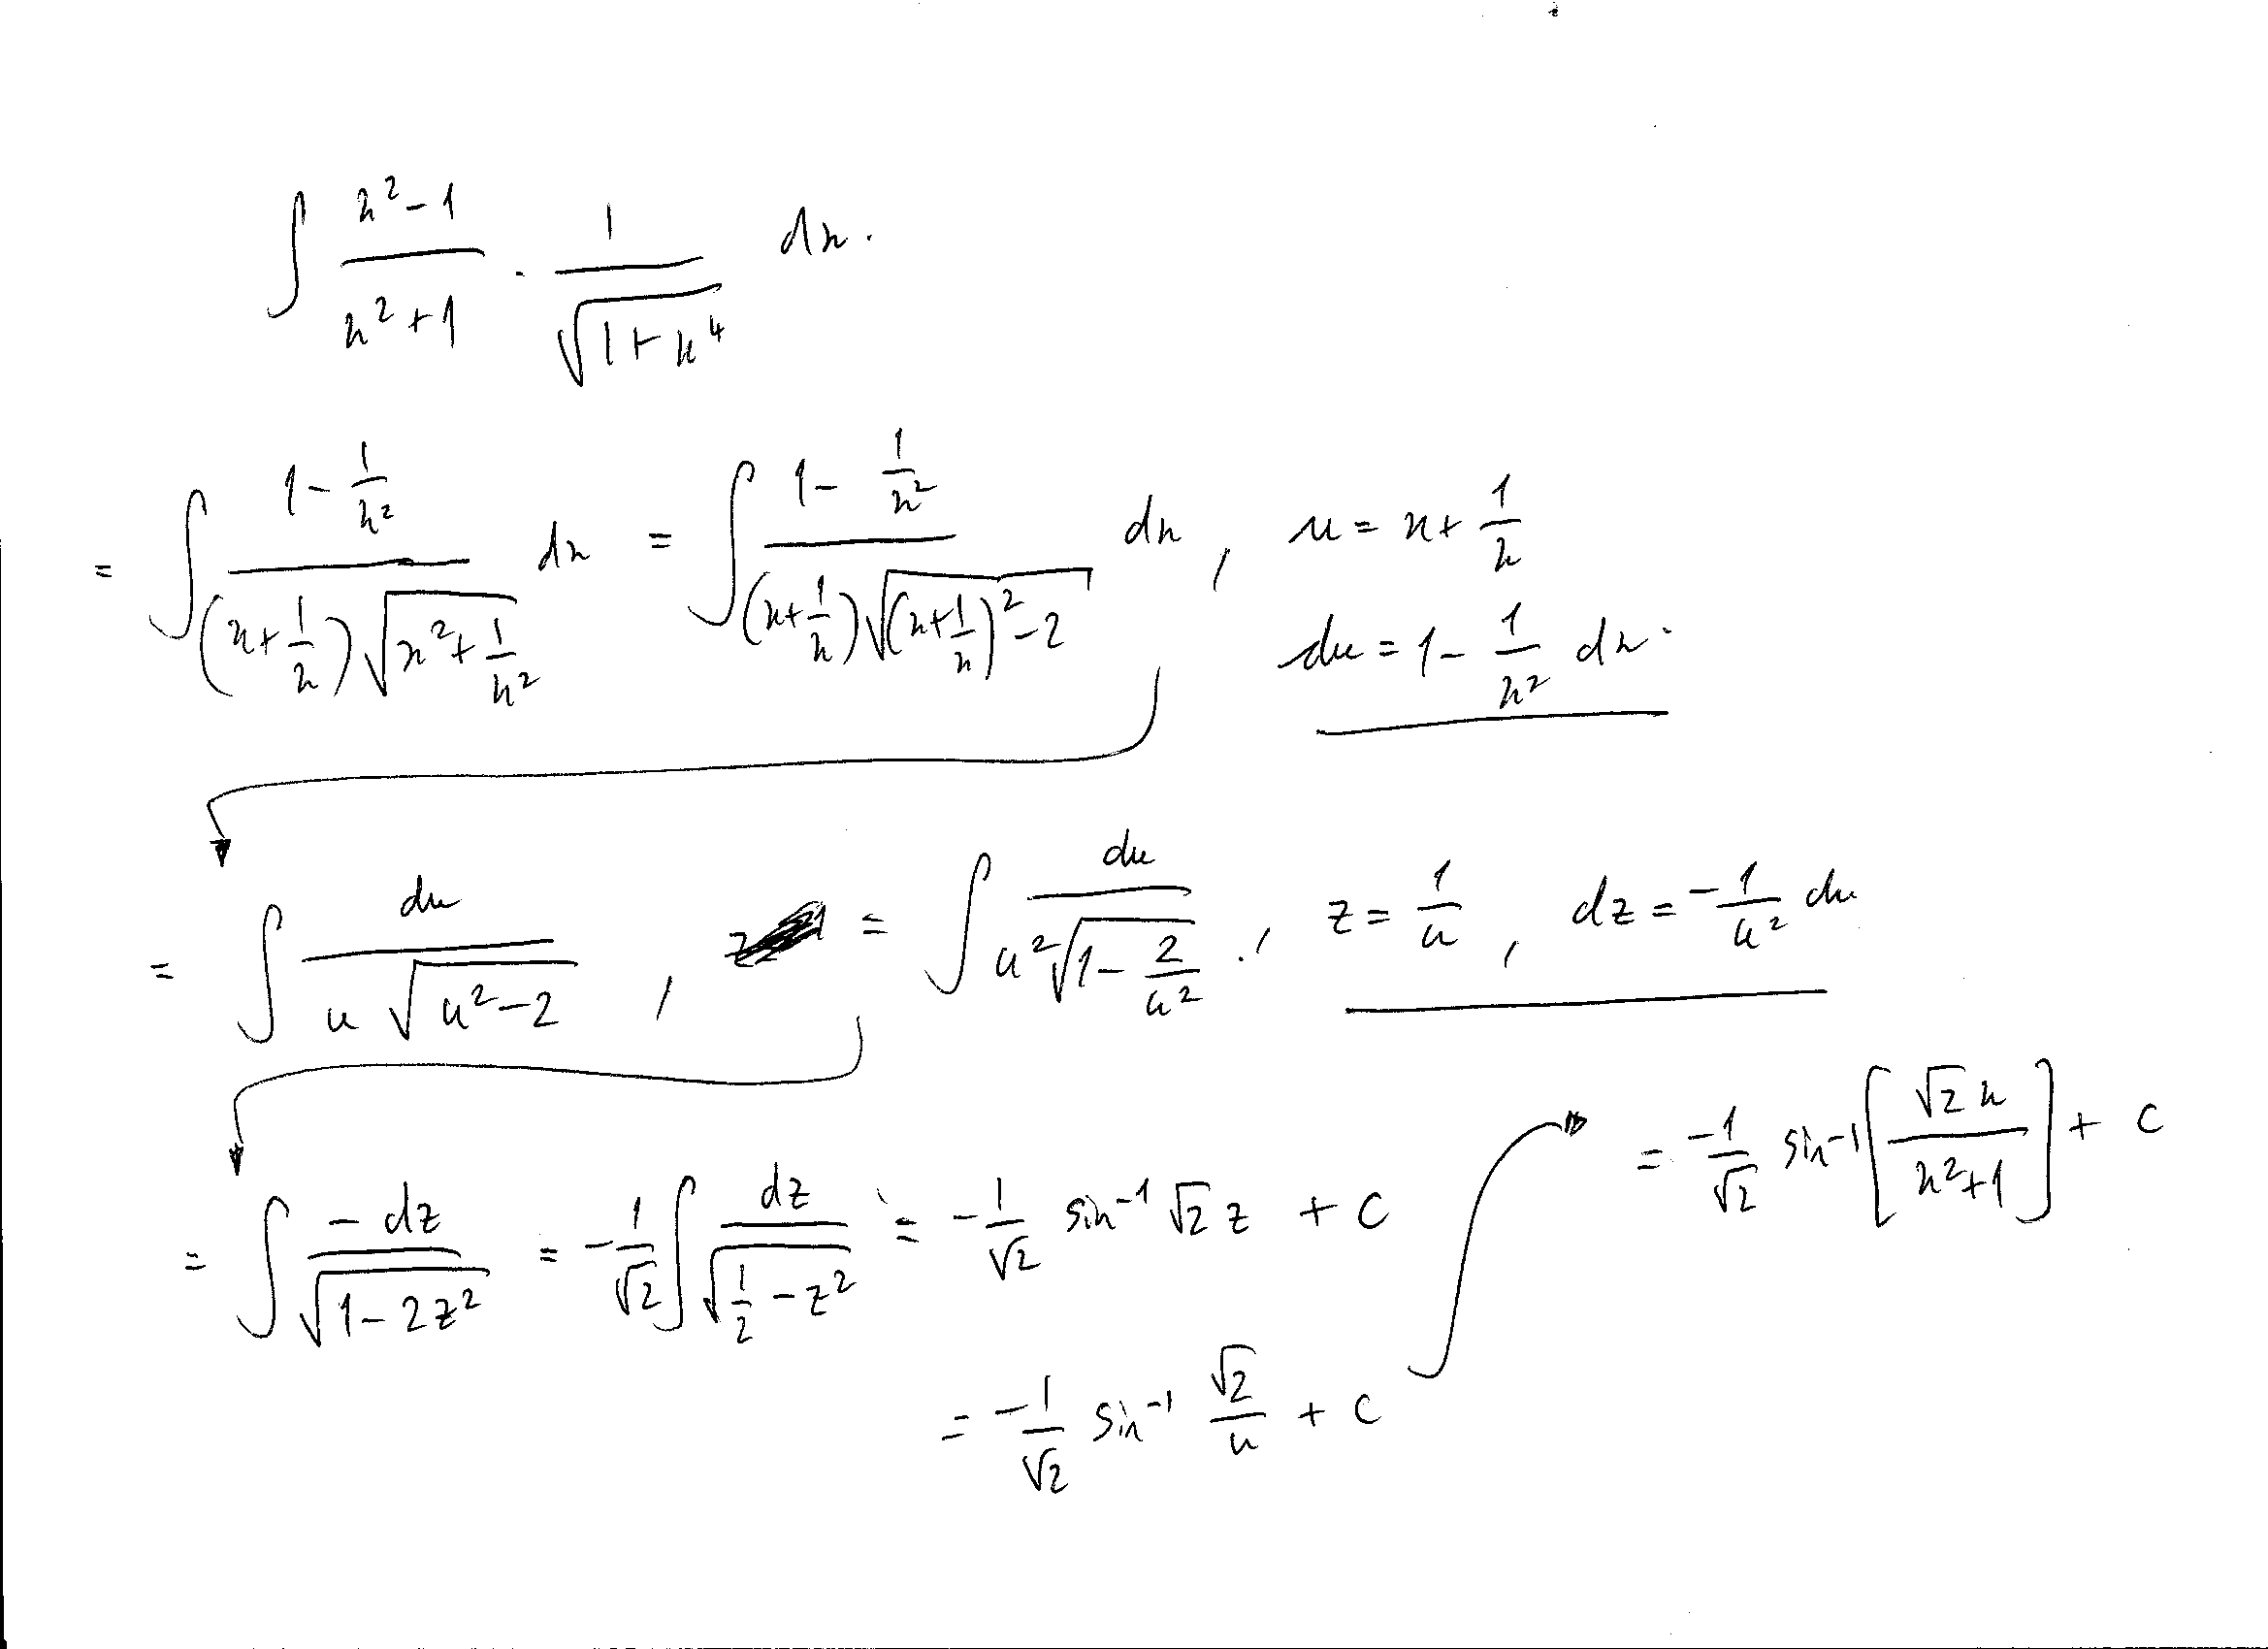 ∫ (x²-1)/(x²+1) · 1/√(1+x⁴) dx.
= ∫ (1 - 1/x²)/((x+1/x)√(x²+1/x²)) dx = ∫ (1 - 1/x²)/((x+1/x)√((x+1/x)²-2)) dx , u = x+1/x
du = 1 - 1/x² dx.
= ∫ du/(u√(u²-2)) , = ∫ du/(u²√(1-2/u²)) , z = 1/u , dz = -1/u² du
= ∫ -dz/√(1-2z²) = -1/√2 ∫ dz/√(1/2 - z²) = -1/√2 sin⁻¹ √2 z + C
= -1/√2 sin⁻¹ √2/u + C
= -1/√2 sin⁻¹[√2 x/(x²+1)] + C